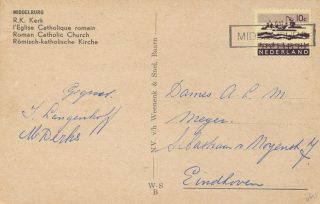 MIDDELBURG
R.K. Kerk
l'Eglise Catholique romain
Roman Catholic Church
Römisch-katholische Kirche
10c
NEDERLAND
MID
Dames A. L. M.
Meyer.
Sebastiaan v
Eindhoven
J. Langenhoff
M Derks
N.V. v/h Weenenk & Snel, Baarn
W-S
B